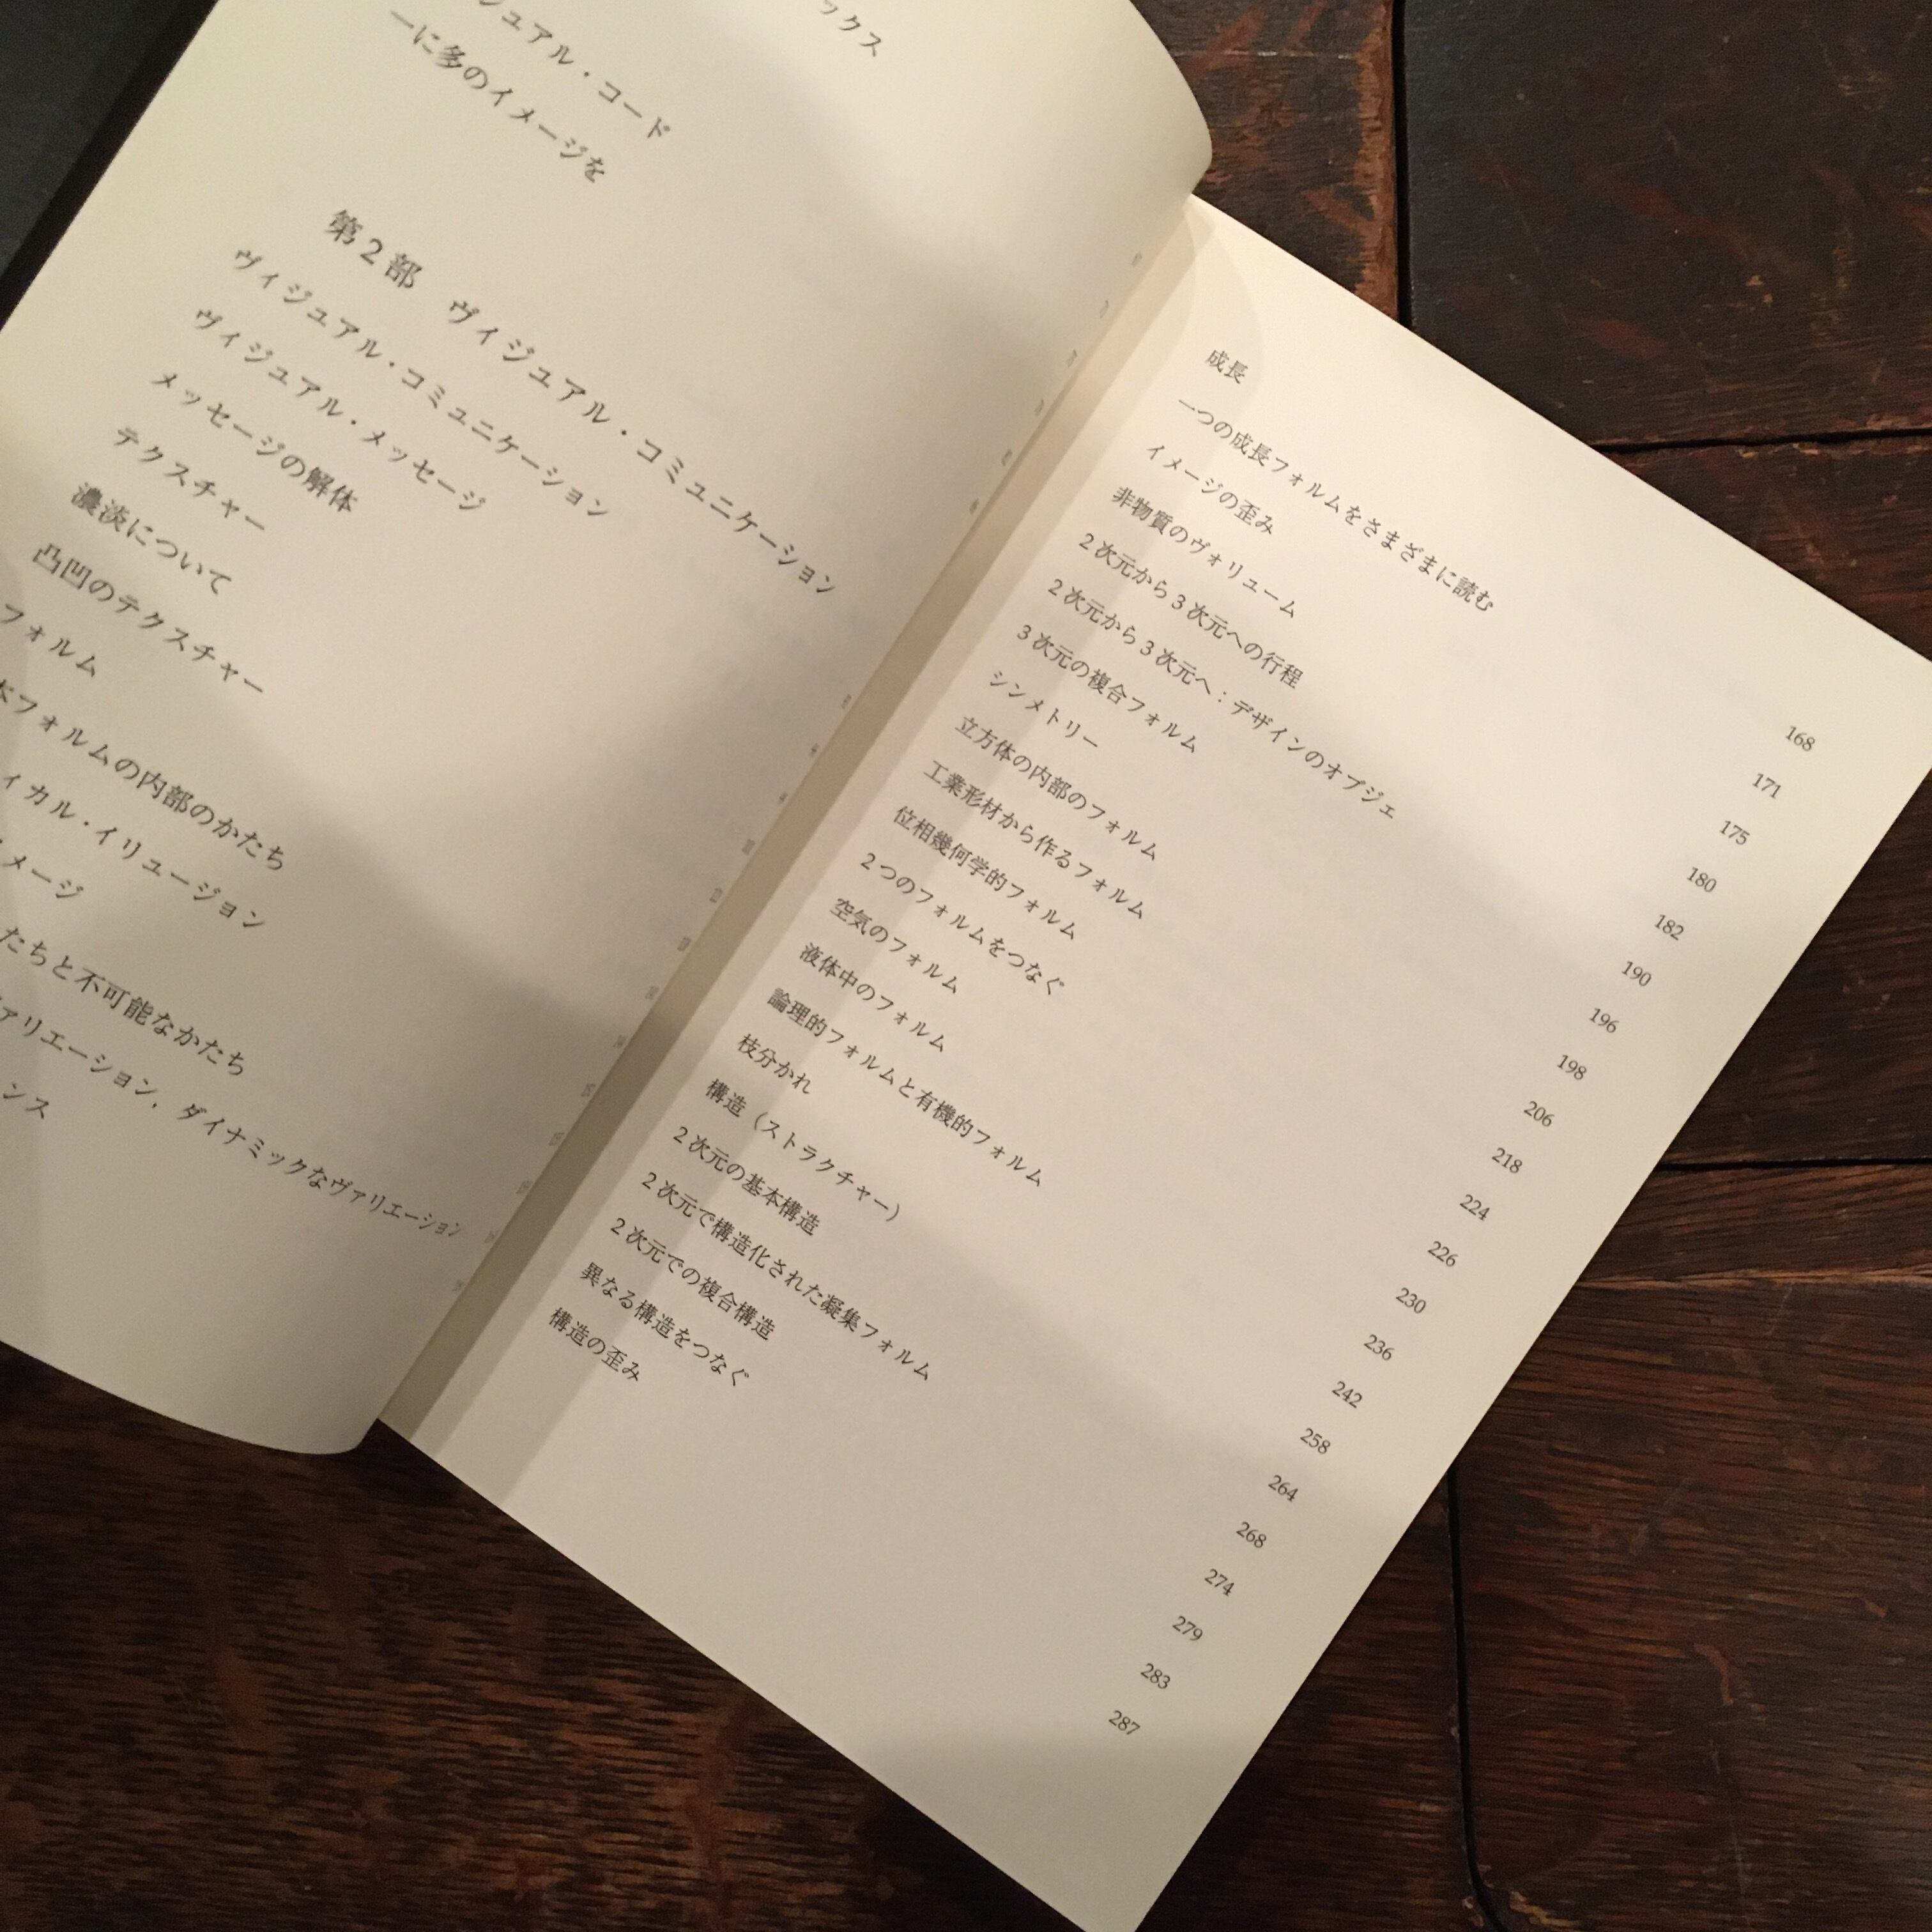 ックス
ジュアル・コード
一に多のイメージを
第2部　ヴィジュアル・コミュニケーション
ヴィジュアル・コミュニケーション
ヴィジュアル・メッセージ
メッセージの解体
テクスチャー
濃淡について
凸凹のテクスチャー
フォルム
本フォルムの内部のかたち
ィカル・イリュージョン
メージ
たちと不可能なかたち
ァリエーション，ダイナミックなヴァリエーション
ンス
成長 168
一つの成長フォルムをさまざまに読む 171
イメージの歪み 175
非物質のヴォリューム 180
2次元から3次元への行程 182
2次元から3次元へ：デザインのオブジェ 190
3次元の複合フォルム 196
シンメトリー 198
立方体の内部のフォルム 206
工業形材から作るフォルム 218
位相幾何学的フォルム 224
2つのフォルムをつなぐ 226
空気のフォルム 230
液体中のフォルム 236
論理的フォルムと有機的フォルム 242
枝分かれ 258
構造（ストラクチャー） 264
2次元の基本構造 268
2次元で構造化された凝集フォルム 274
2次元での複合構造 279
異なる構造をつなぐ 283
構造の歪み 287